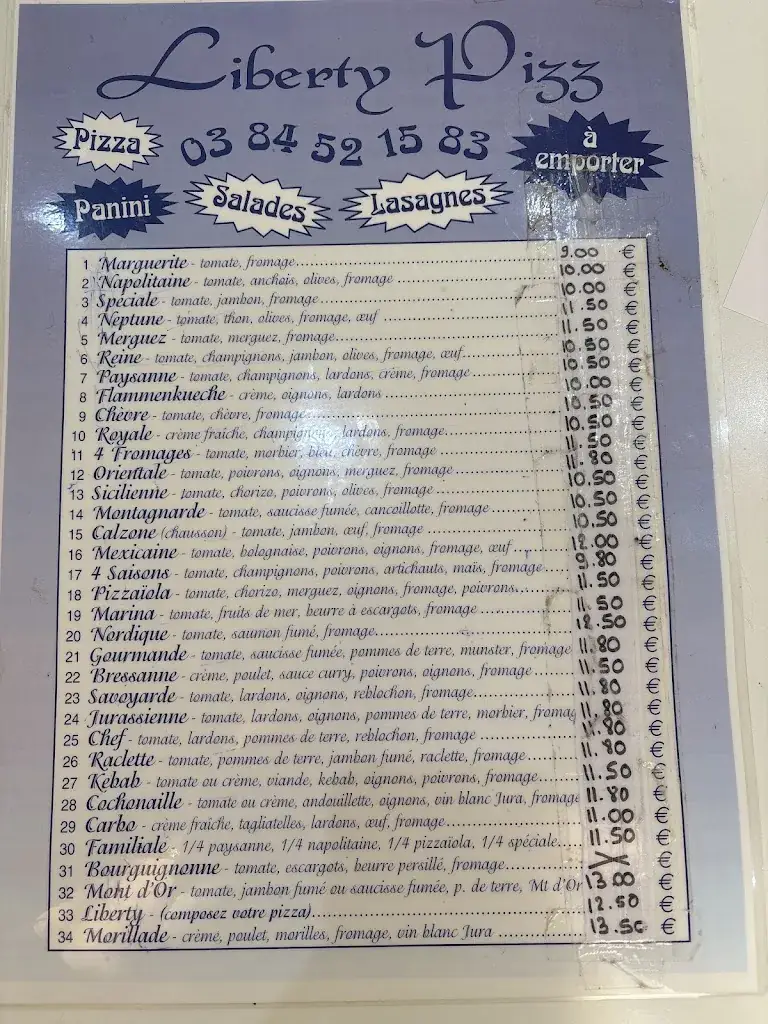 Liberty Pizz
Pizza
03 84 52 15 83
à emporter
Panini
Salades
Lasagnes
1 Marguerite - tomate, fromage 9.00 €
2 Napolitaine - tomate, anchois, olives, fromage 10.00 €
3 Spéciale - tomate, jambon, fromage 10.00 €
4 Neptune - tomate, thon, olives, fromage, œuf 11.50 €
5 Merguez - tomate, merguez, fromage 11.50 €
6 Reine - tomate, champignons, jambon, olives, fromage, œuf 10.50 €
7 Paysanne - tomate, champignons, lardons, crème, fromage 10.50 €
8 Flammenkueche - crème, oignons, lardons 10.00 €
9 Chèvre - tomate, chèvre, fromage 10.50 €
10 Royale - crème fraîche, champignons, lardons, fromage 10.50 €
11 4 Fromages - tomate, morbier, bleu, chèvre, fromage 11.50 €
12 Orientale - tomate, poivrons, oignons, merguez, fromage 11.80 €
13 Sicilienne - tomate, chorizo, poivrons, olives, fromage 10.50 €
14 Montagnarde - tomate, saucisse fumée, cancoillotte, fromage 10.50 €
15 Calzone (chausson) - tomate, jambon, œuf, fromage 10.50 €
16 Mexicaine - tomate, bolognaise, poivrons, oignons, fromage, œuf 12.00 €
17 4 Saisons - tomate, champignons, poivrons, artichauts, maïs, fromage 9.80 €
18 Pizzaïola - tomate, chorizo, merguez, oignons, fromage, poivrons 11.50 €
19 Marina - tomate, fruits de mer, beurre à escargots, fromage 11.50 €
20 Nordique - tomate, saumon fumé, fromage 12.50 €
21 Gourmande - tomate, saucisse fumée, pommes de terre, munster, fromage 11.80 €
22 Bressanne - crème, poulet, sauce curry, poivrons, oignons, fromage 11.50 €
23 Savoyarde - tomate, lardons, oignons, reblochon, fromage 11.80 €
24 Jurassienne - tomate, lardons, oignons, pommes de terre, morbier, fromag 11.80 €
25 Chef - tomate, lardons, pommes de terre, reblochon, fromage 11.80 €
26 Raclette - tomate, pommes de terre, jambon fumé, raclette, fromage 11.80 €
27 Kebab - tomate ou crème, viande, kebab, oignons, poivrons, fromage 11.50 €
28 Cochonaille - tomate ou crème, andouillette, oignons, vin blanc Jura, fromage 11.80 €
29 Carbo - crème fraîche, tagliatelles, lardons, œuf, fromage 11.00 €
30 Familiale - 1/4 paysanne, 1/4 napolitaine, 1/4 pizzaïola, 1/4 spéciale 11.50 €
31 Bourguignonne - tomate, escargots, beurre persillé, fromage €
32 Mont d'Or - tomate, jambon fumé ou saucisse fumée, p. de terre, Mt d'Or 13.00 €
33 Liberty - (composez votre pizza) 12.50 €
34 Morillade - crème, poulet, morilles, fromage, vin blanc Jura 13.50 €